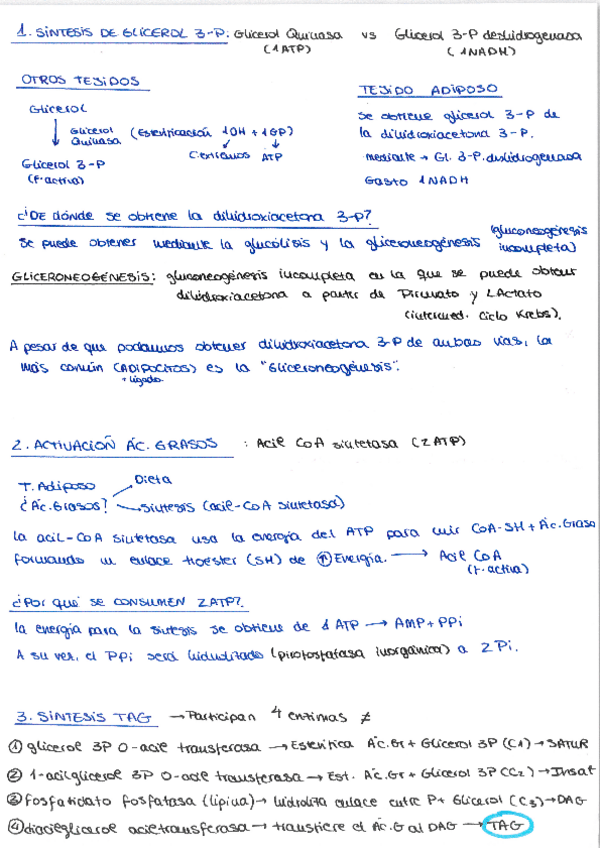 1. SÍNTESIS DE GLICEROL 3-P: Glicerol Quinasa vs Glicerol 3-P deshidrogenasa
(1ATP) (1NADH)
OTROS TEJIDOS
Glicerol
Glicerol Quinasa (Esterificación 1OH + 1GP)
Carbonos ATP
Glicerol 3-P
(F. activa)
TEJIDO ADIPOSO
Se obtiene glicerol 3-P de
la dihidroxiacetona 3-P.
mediante → Gl. 3-P. deshidrogenasa
Gasto 1NADH
¿DE dónde se obtiene la dihidroxiacetona 3-P?
Se puede obtener mediante la glucólisis y la gliceroneogénesis (gluconeogénesis incompleta)
GLICERONEOGÉNESIS: gluconeogénesis incompleta en la que se puede obtener
dihidroxiacetona a partir de Piruvato y Lactato
(intermed. Ciclo Krebs).
A pesar de que podamos obtener dihidroxiacetona 3-P de ambas vías, la
más común (ADIPOCITOS) es la "Gliceroneogénesis".
+ hígado
2. ACTIVACIÓN ÁC. GRASOS : Acil CoA sintetasa (2ATP)
T. Adiposo
¿Ác. Grasos?
Dieta
Síntesis (acil-CoA sintetasa)
La acil-CoA sintetasa usa la energía del ATP para unir CoA-SH + Ác. Graso
formando un enlace tioester (SH) de ↑ Energía. → Acil CoA
(F. activa)
¿Por qué se CONSUMEN 2ATP?
La energía para la síntesis se obtiene de 1 ATP → AMP + PPi
A su vez, el PPi será hidrolizado (pirofosfatasa inorgánica) a 2 Pi.
3. SÍNTESIS TAG → Participan 4 enzimas ≠
① glicerol 3P O-acil transferasa → Esterifica Ác. Gr + Glicerol 3P (C1) → SATUR
② 1-acilglicerol 3P O-acil transferasa → Est. Ác. Gr + Glicerol 3P (C2) → Insat
③ Fosfatidato fosfatasa (lipina) → hidroliza enlace entre P + Glicerol (C3) → DAG
④ diacilglicerol aciltransferasa → transfiere el Ác. G al DAG → TAG